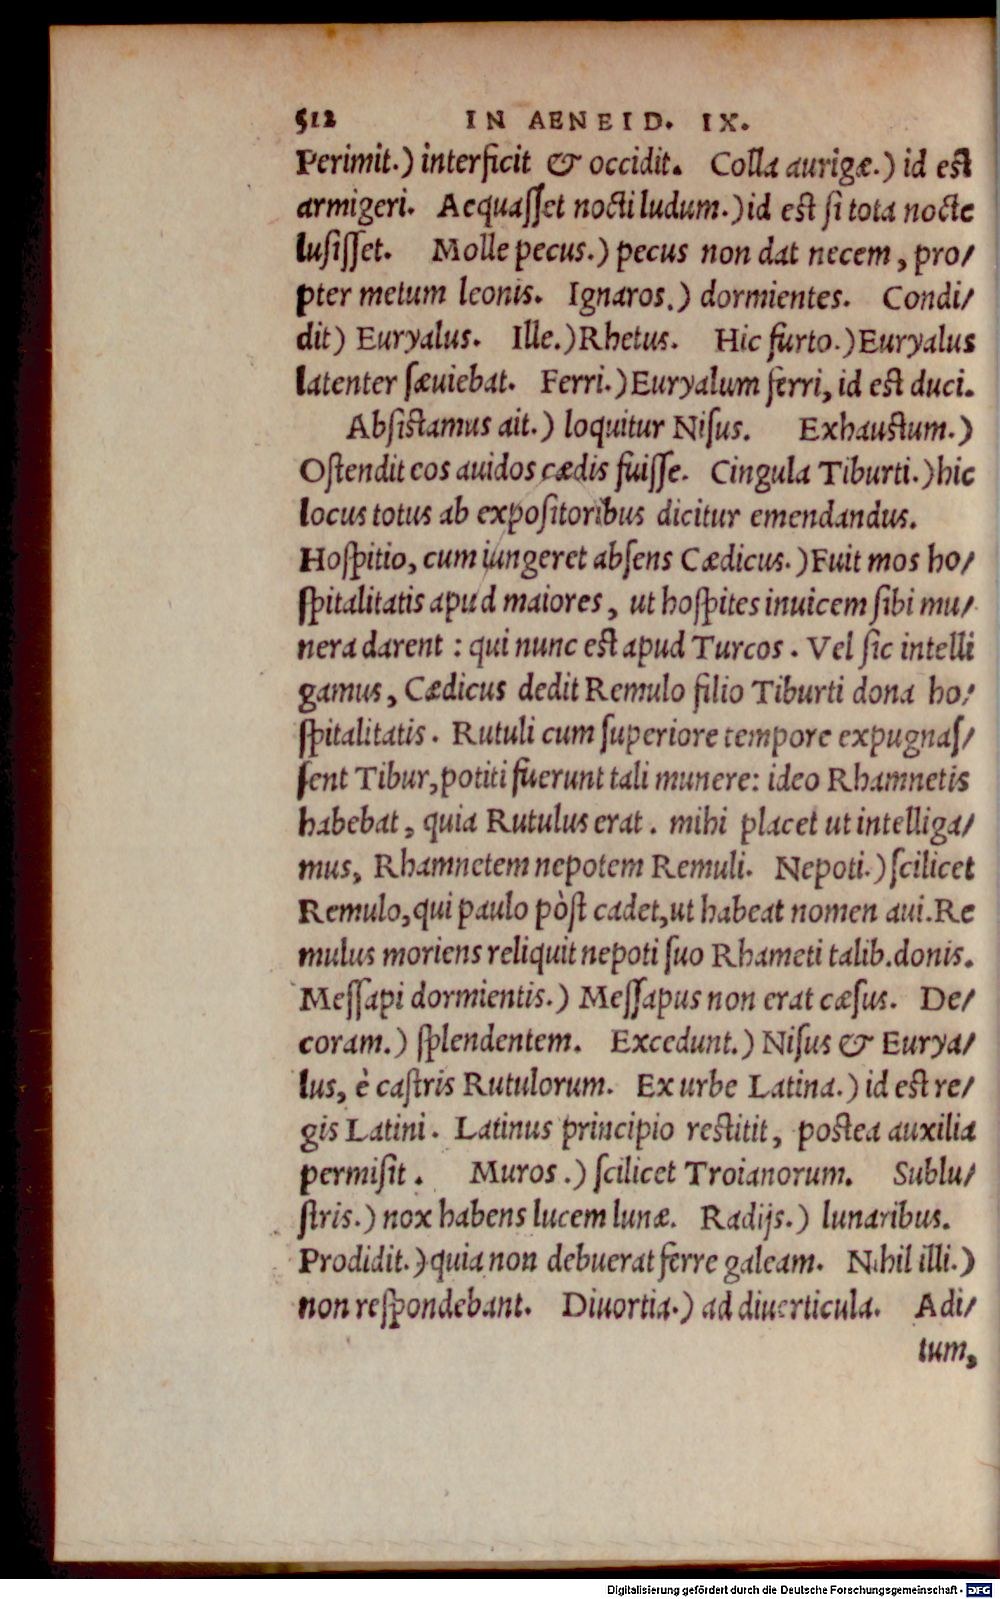 512 IN AENEID. IX.
Perimit.) interficit & occidit. Colla aurigæ.) id est
armigeri. Aequaſſet nocti ludum.) id est ſi tota nocte
luſiſſet. Molle pecus.) pecus non dat necem, pro/
pter metum leonis. Ignaros.) dormientes. Condi/
dit) Euryalus. Ille.) Rhetus. Hic furto.) Euryalus
latenter ſæuiebat. Ferri.) Euryalum ferri, id est duci.
Abſistamus ait.) loquitur Niſus. Exhaustum.)
Oſtendit eos auidos cædis fuiſſe. Cingula Tiburti.) hic
locus totus ab expoſitoribus dicitur emendandus.
Hoſpitio, cum iungeret abſens Cædicus.) Fuit mos ho/
ſpitalitatis apud maiores, ut hoſpites inuicem ſibi mu/
nera darent : qui nunc est apud Turcos. Vel ſic intelli
gamus, Cædicus dedit Remulo filio Tiburti dona ho/
ſpitalitatis. Rutuli cum ſuperiore tempore expugnaſ/
ſent Tibur, potiti fuerunt tali munere: ideo Rhamnetis
habebat, quia Rutulus erat. mihi placet ut intelliga/
mus, Rhamnetem nepotem Remuli. Nepoti.) ſcilicet
Remulo, qui paulo pòſt cadet, ut habeat nomen aui. Re
mulus moriens reliquit nepoti ſuo Rhameti talib. donis.
Meſſapi dormientis.) Meſſapus non erat cæſus. De/
coram.) ſplendentem. Excedunt.) Niſus & Eurya/
lus, è caſtris Rutulorum. Ex urbe Latina.) id est re/
gis Latini. Latinus principio restitit, postea auxilia
permiſit. Muros.) ſcilicet Troianorum. Sublu/
ſtris.) nox habens lucem lunæ. Radijs.) lunaribus.
Prodidit.) quia non debuerat ferre galeam. Nihil illi.)
non reſpondebant. Diuortia.) ad diuerticula. Adi/
tum,
Digitalisierung gefördert durch die Deutsche Forschungsgemeinschaft - DFG